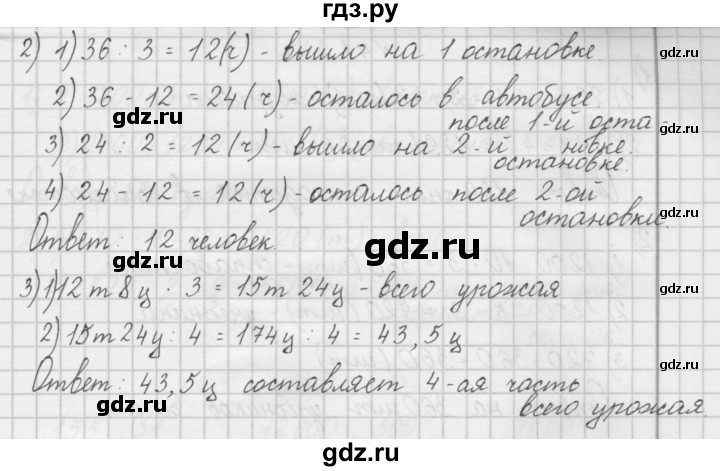 гдз.ру
2) 1) 36 : 3 = 12(ч) - вышло на 1 остановке.
2) 36 - 12 = 24 (ч) - осталось в автобусе.
после 1-й оста-
3) 24 : 2 = 12 (ч) - вышло на 2-й новке.
остановке.
4) 24 - 12 = 12 (ч) - осталось после 2-ой
остановки.
Ответ: 12 человек.
3) 1) 12 т 8 ц · 3 = 15 т 24 ц - всего урожая
2) 15 т 24 ц : 4 = 174 ц : 4 = 43,5 ц
Ответ: 43,5 ц составляет 4-ая часть
всего урожая.
gdz.ru
gdz.ru
gdz.ru
gdz.ru
gdz.ru
gdz.ru
gdz.ru
gdz.ru
gdz.ru
gdz.ru
gdz.ru